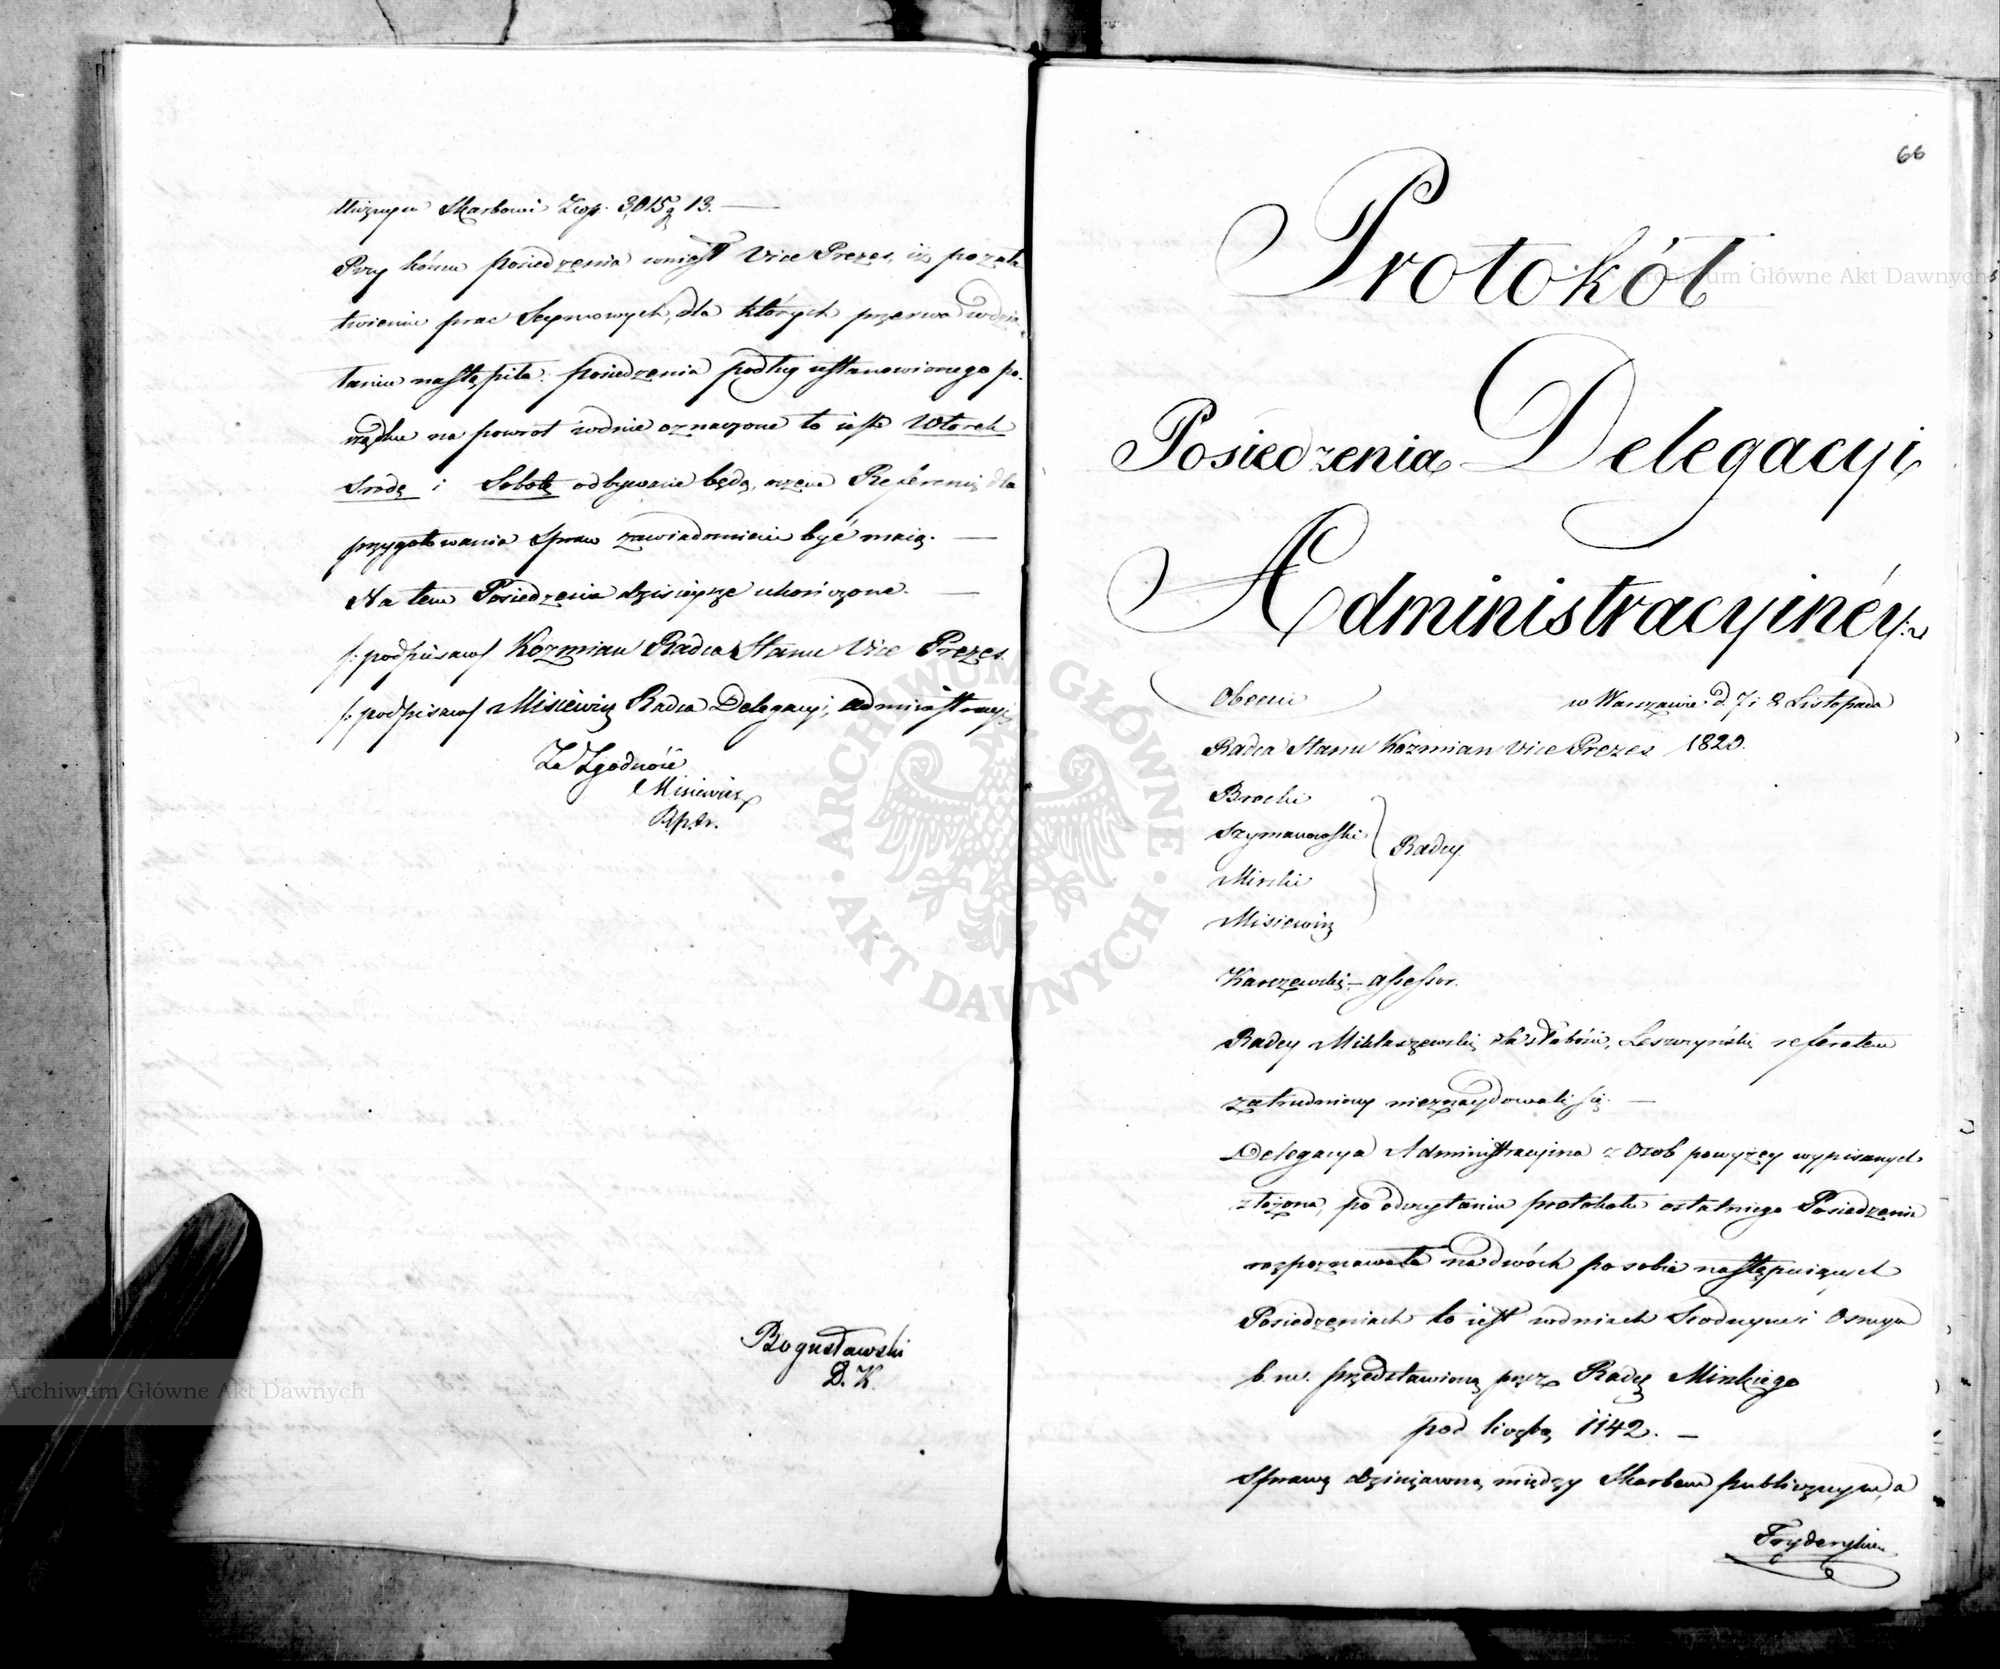 Skarbowi Złp. 3,015 g 13. —
Przy końcu posiedzenia wniósł Vice Prezes, iż po zała
twieniu prac Seymowych, dla których przerwa w dzia
łaniu nastąpiła: posiedzenia podług ustanowionego po-
rządku na powrot w dnie oznaczone to iest Wtorek
Srodę i Sobotę odbywane będą, o czem Referenci dla
przygotowania Spraw zawiadomieni być maią. —
Na tem Posiedzenie dzisieysze ukończone. —
/: podpisano/ Koźmian Radca Stanu Vice Prezes.
/: podpisano/ Misiewicz Radca Delegacyi administracyi:
Za Zgodność
Misiewicz
Bogusławski
D. K.
66
Protokół
Posiedzenia Delegacyi
Administracyinéy:
Obecni
w Warszawie d. 7 i 8 Listopada
Radca Stanu Koźmian Vice Prezes 1820.
Brocki
Szymanowski
Radcy
Mirski
Misiewicz
Karczewski — assessor.
Radcy Mikłaszewski dla słabości, Leszczyński referatem
zatrudniony nieznaydowali się. —
Delegacya Administracyina z Osob powyżey wypisanych
złożona, po odczytaniu protokołu ostatniego Posiedzenia
rozpoznawała na dwóch po sobie następuiących
Posiedzeniach to iest w dniach Siodmym i Osmym
b. m. przedstawioną przez Radcę Mirskiego
pod liczbą 1142. —
Sprawę dzierżawną między Skarbem publicznym, a
Fryderykiem
Archiwum Główne Akt Dawnych
ARCHIWUM GŁÓWNE · AKT DAWNYCH ·
Archiwum Główne Akt Dawnych